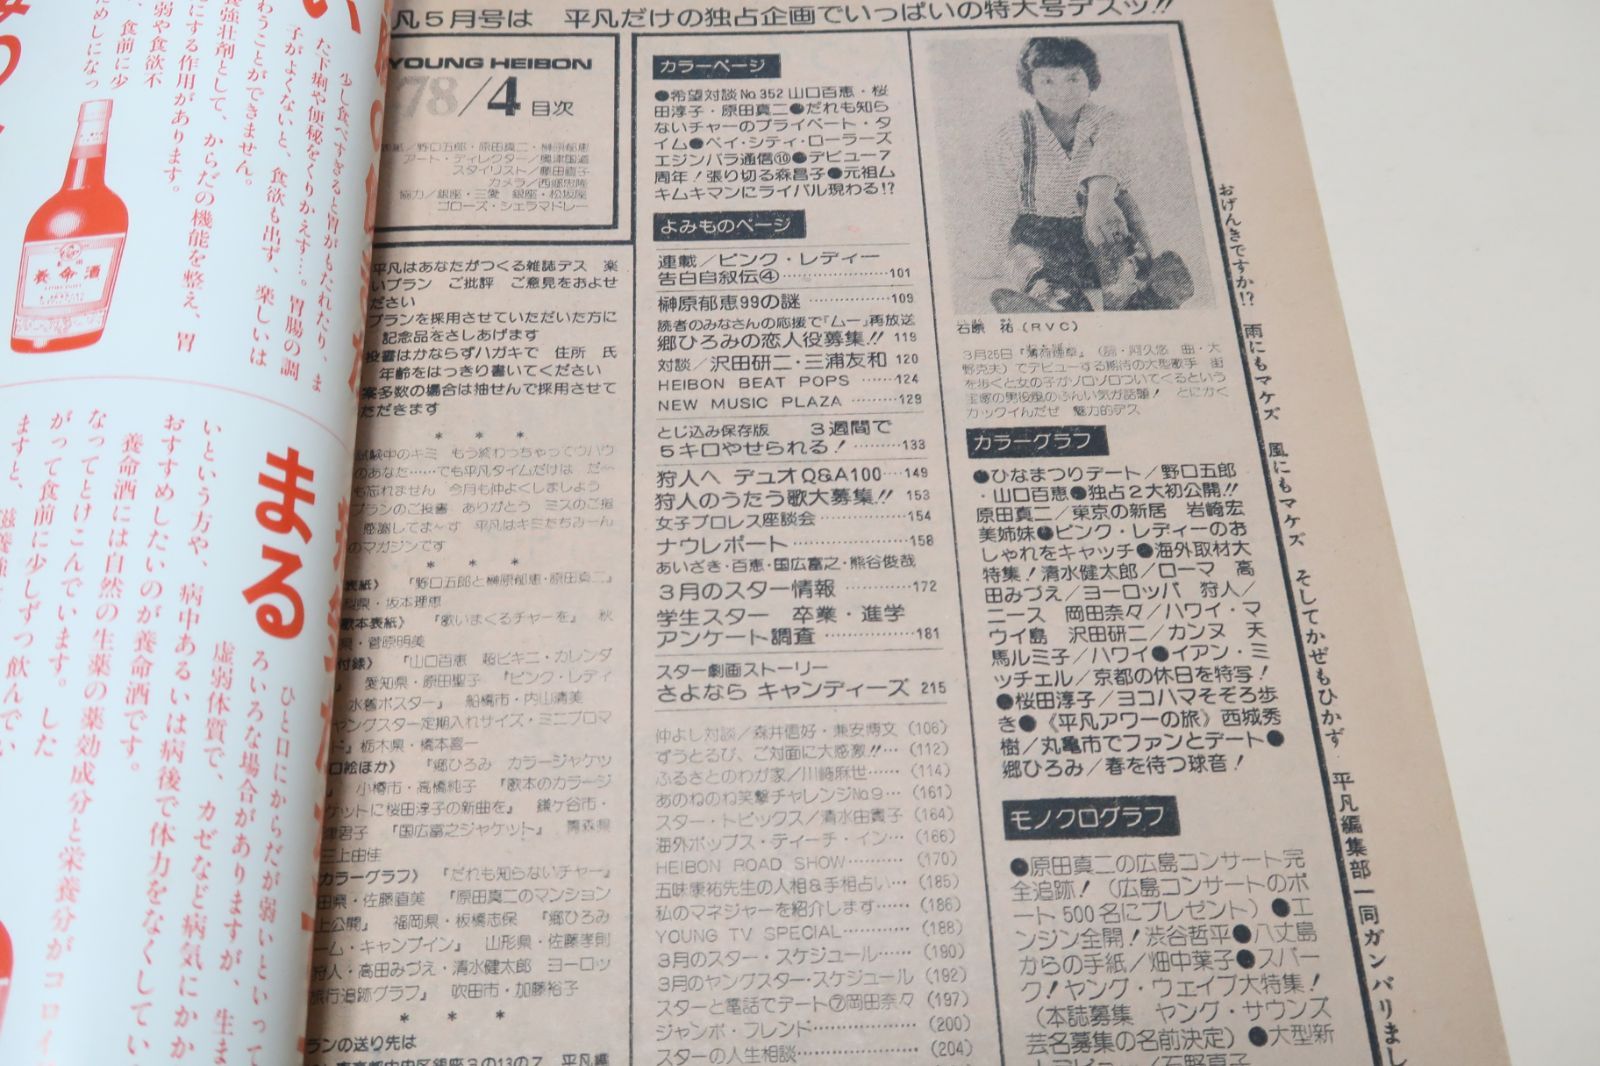 凡5月号は 平凡だけの独占企画でいっぱいの特大号デスッ!!
YOUNG HEIBON
'78/4 目次
表紙/野口五郎・原田真二・榊原郁恵
アート・ディレクター/興津国道
カメラ/西郷忠隆
協力/銀座・三愛 銀座・松坂屋
ゴローズ・シェラマドレー
平凡はあなたがつくる雑誌デス 楽
いプラン ご批評 ご意見をおよせ
ださい
プランを採用させていただいた方に
記念品をさしあげます
投書はかならずハガキで 住所 氏
年齢をはっきり書いてください
案多数の場合は抽せんで採用させて
ただきます
* * *
試験中のキミ もう終わっちゃってウハウ
のあなた……でも平凡タイムだけは だ〜
も忘れません 今月も仲よくしましよう
プランのご投書 ありがとう ミスのご指
感謝してま〜す 平凡はキミたちみーん
のマガジンです
* * *
表紙〉 『野口五郎と榊原郁恵・原田真二』
梨県・坂本理恵
歌本表紙〉 『歌いまくるチャーを』 秋
県・菅原明美
付録〉 『山口百恵 超ビキニ・カレンダ
愛知県・原田聖子 『ピンク・レディ
水着ポスター』 船橋市・内山清美
ヤングスター定期入れサイズ・ミニブロマ
ド』栃木県・橋本喜一
口絵ほか〉 『郷ひろみ カラージャケッ
小樽市・高橋純子 『歌本のカラージ
ケットに桜田淳子の新曲を』 鎌ケ谷市・
君子 『国広富之ジャケット』 青森県
三上由佳
カラーグラフ〉 『だれも知らないチャー』
田県・佐藤直美 『原田真二のマンション
上公開』 福岡県・板橋志保 『郷ひろみ
ーム・キャンプイン』 山形県・佐藤孝則
狩人・高田みづえ・清水健太郎 ヨーロッ
旅行追跡グラフ』 吹田市・加藤裕子
* * *
ランの送り先は
東京都中央区銀座3の13の7 平凡編
カラーページ
●希望対談No.352山口百恵・桜
田淳子・原田真二●だれも知ら
ないチャーのプライベート・タ
イム●ベイ・シティ・ローラーズ
エジンバラ通信⑩●デビュー7
周年!張り切る森昌子●元祖ム
キムキマンにライバル現わる!?
よみものページ
連載/ピンク・レディー
告白自叙伝④……………………101
榊原郁恵99の謎 ……………109
読者のみなさんの応援で「ムー」再放送
郷ひろみの恋人役募集!! 119
対談/沢田研二・三浦友和 120
HEIBON BEAT POPS ……124
NEW MUSIC PLAZA ………129
とじ込み保存版 3週間で
5キロやせられる!……133
狩人へ デュオQ&A100…149
狩人のうたう歌大募集!! 153
女子プロレス座談会…………154
ナウレポート………………158
あいざき・百恵・国広富之・熊谷俊哉
3月のスター情報………172
学生スター 卒業・進学
アンケート調査……………181
スター劇画ストーリー
さよなら キャンディーズ 215
仲よし対談/森井信好・兼安博文(106)
ずうとるび、ご対面に大感激!!…(112)
ふるさとのわが家/川﨑麻世……(114)
あのねのね笑撃チャレンジNo.9…(161)
スター・トピックス/清水由貴子(164)
海外ポップス・ティーチ・イン…(166)
HEIBON ROAD SHOW………(170)
五味康祐先生の人相&手相占い…(185)
私のマネジャーを紹介します……(186)
YOUNG TV SPECIAL…………(188)
3月のスター・スケジュール……(190)
3月のヤングスター・スケジュール(192)
スターと電話でデート⑦岡田奈々(197)
ジャンボ・フレンド………………(200)
スターの人生相談…………………(204)
石原 祐(RVC)
3月25日『薄荷煙草』(詞・阿久悠 曲・大
野克夫)でデビューする期待の大型歌手 街
を歩くと女の子がゾロゾロついてくるという
宝塚の男役風のふんい気が話題! とにかく
カックイんだぜ 魅力的デス
カラーグラフ
●ひなまつりデート/野口五郎
・山口百恵●独占2大初公開!!
原田真二/東京の新居 岩崎宏
美姉妹●ピンク・レディーのお
しゃれをキャッチ●海外取材大
特集!清水健太郎/ローマ 高
田みづえ/ヨーロッパ 狩人/
ニース 岡田奈々/ハワイ・マ
ウイ島 沢田研二/カンヌ 天
馬ルミ子/ハワイ●イアン・ミ
ッチェル/京都の休日を特写!
●桜田淳子/ヨコハマそぞろ歩
き●《平凡アワーの旅》西城秀
樹/丸亀市でファンとデート●
郷ひろみ/春を待つ球音!
モノクログラフ
●原田真二の広島コンサート完
全追跡!(広島コンサートのポ
ート500名にプレゼント)●エ
ンジン全開!渋谷哲平●八丈島
からの手紙/畑中葉子●スパー
ク!ヤング・ウェイブ大特集!
(本誌募集 ヤング・サウンズ
芸名募集の名前決定)●大型新
おげんきですか!? 雨にもマケズ 風にもマケズ そしてかぜもひかず 平凡編集部一同ガンバリまし
少し食べすぎると胃がもたれたり、ま
た下痢や便秘をくりかえす…。胃腸の調
子がよくないと、食欲も出ず、楽しいは
わうことができません。
養強壮剤として、からだの機能を整え、胃
にする作用があります。
弱や食欲不
、食前に少
ためしになっ
養命酒
まる
ひと口にからだが弱いといって
ろいろな場合がありますが、生ま
虚弱体質で、カゼなど病気にかか
いという方や、病中あるいは病後で体力をなくしてい
おすすめしたいのが養命酒です。
養命酒には自然の生薬の薬効成分と栄養分がコロイ
なってとけこんでいます。した
がって食前に少しずつ飲んでい
ますと、滋養強